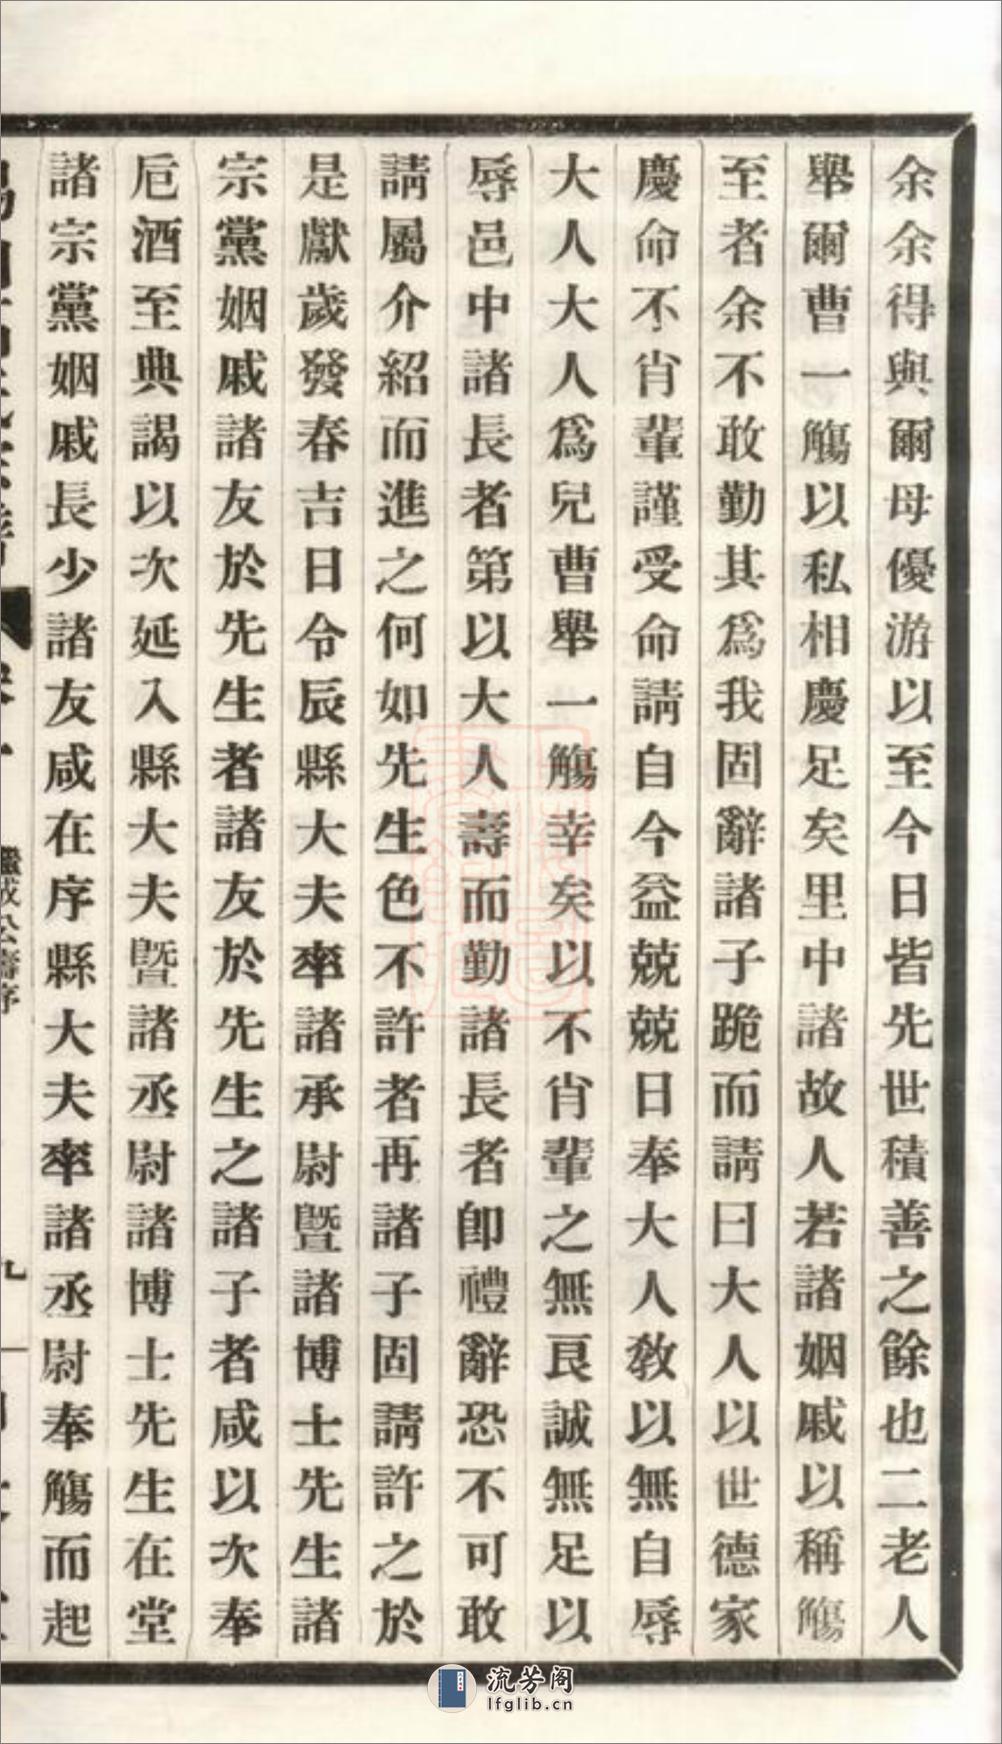 余余得與爾母優游以至今日皆先世積善之餘也二老人
舉爾曹一觴以私相慶足矣里中諸故人若諸姻戚以稱觴
至者余不敢勤其爲我固辭諸子跪而請曰大人以世德家
慶命不肖輩謹受命請自今益兢兢日奉大人敎以無自辱
大人大人爲兒曹舉一觴幸矣以不肖輩之無良誠無足以
辱邑中諸長者第以大人壽而勤諸長者卽禮辭恐不可敢
請屬介紹而進之何如先生色不許者再諸子固請許之於
是獻歲發春吉日令辰縣大夫率諸承尉曁諸博士先生諸
宗黨姻戚諸友於先生者諸友於先生之諸子者咸以次奉
卮酒至典謁以次延入縣大夫曁諸丞尉諸博士先生在堂
諸宗黨姻戚長少諸友咸在序縣大夫率諸丞尉奉觴而起
繼成公壽序
九
流芳阁
lfglib.cn